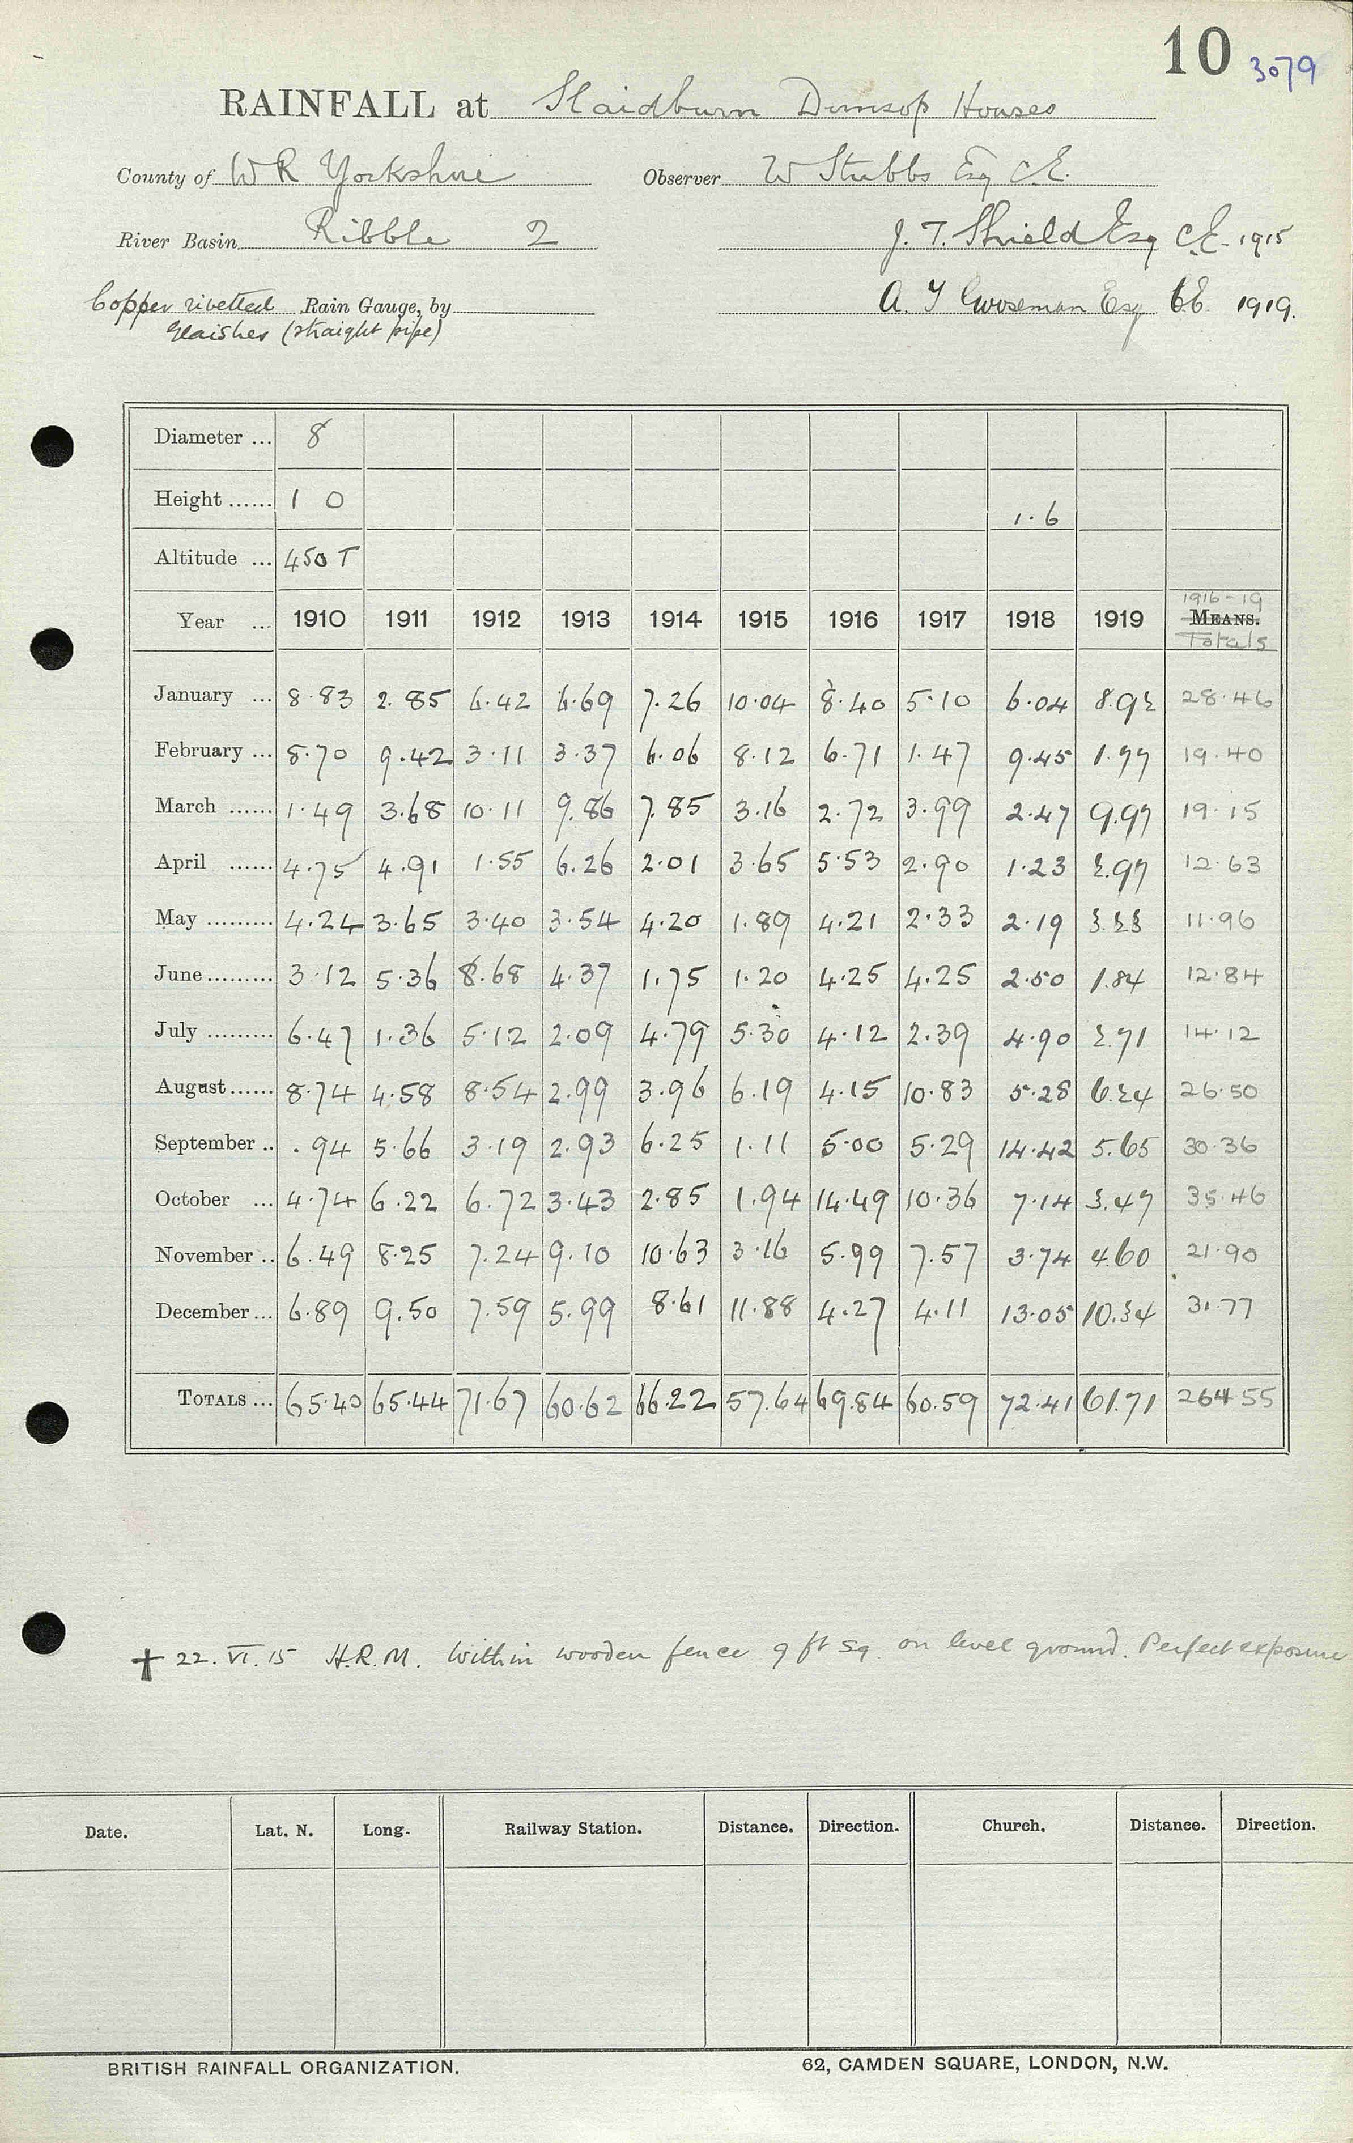 10 3079
RAINFALL at Slaidburn Dunsop Houses
County of W R Yorkshire Observer W Stubbs Esq C.E.
River Basin Ribble 2 J. T. Shield Esq C.E. 1915
Copper rivetted Rain Gauge, by A. Esq C.E. 1919.
Glaisher (straight pipe)
Diameter ... 8
Height ...... 1 0 1.6
Altitude ... 450 T
1916-19
Year ... 1910 1911 1912 1913 1914 1915 1916 1917 1918 1919 MEANS.
Totals
January ... 8.83 2.85 6.42 6.69 7.26 10.04 8.40 5.10 6.04 8.92 28.46
February ... 8.70 9.42 3.11 3.37 6.06 8.12 6.71 1.47 9.45 1.77 19.40
March ...... 1.49 3.68 10.11 9.86 7.85 3.16 2.72 3.99 2.47 9.97 19.15
April ...... 4.75 4.91 1.55 6.26 2.01 3.65 5.53 2.90 1.23 2.97 12.63
May ......... 4.24 3.65 3.40 3.54 4.20 1.89 4.21 2.33 2.19 3.23 11.96
June ......... 3.12 5.36 8.68 4.37 1.75 1.20 4.25 4.25 2.50 1.84 12.84
July ......... 6.47 1.36 5.12 2.09 4.79 5.30 4.12 2.39 4.90 2.71 14.12
August ...... 8.74 4.58 8.54 2.99 3.96 6.19 4.15 10.83 5.28 6.24 26.50
September .. .94 5.66 3.19 2.93 6.25 1.11 5.00 5.29 14.42 5.65 30.36
October ... 4.74 6.22 6.72 3.43 2.85 1.94 14.49 10.36 7.14 3.47 35.46
November .. 6.49 8.25 7.24 9.10 10.63 3.16 5.99 7.57 3.74 4.60 21.90
December ... 6.89 9.50 7.59 5.99 8.61 11.88 4.27 4.11 13.05 10.34 31.77
TOTALS ... 65.40 65.44 71.67 60.62 66.22 57.64 69.84 60.59 72.41 61.71 264.55
† 22.VI.15 H.R.M. Within wooden fence 9 ft sq. on level ground. Perfect exposure
Date. Lat. N. Long. Railway Station. Distance. Direction. Church. Distance. Direction.
BRITISH RAINFALL ORGANIZATION. 62, CAMDEN SQUARE, LONDON, N.W.